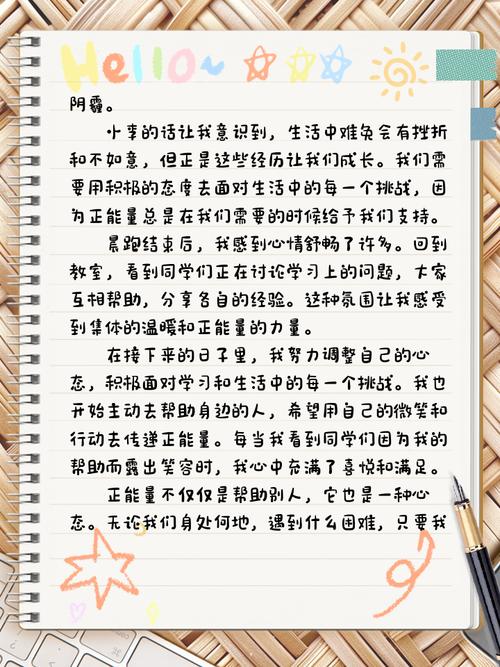 Hello~
阴霾。
小李的话让我意识到，生活中难免会有挫折
和不如意，但正是这些经历让我们成长。我们需
要用积极的态度去面对生活中的每一个挑战，因
为正能量总是在我们需要的时候给予我们支持。
晨跑结束后，我感到心情舒畅了许多。回到
教室，看到同学们正在讨论学习上的问题，大家
互相帮助，分享各自的经验。这种氛围让我感受
到集体的温暖和正能量的力量。
在接下来的日子里，我努力调整自己的心
态，积极面对学习和生活中的每一个挑战。我也
开始主动去帮助身边的人，希望用自己的微笑和
行动去传递正能量。每当我看到同学们因为我的
帮助而露出笑容时，我心中充满了喜悦和满足。
正能量不仅仅是帮助别人，它也是一种心
态。无论我们身处何地，遇到什么困难，只要我